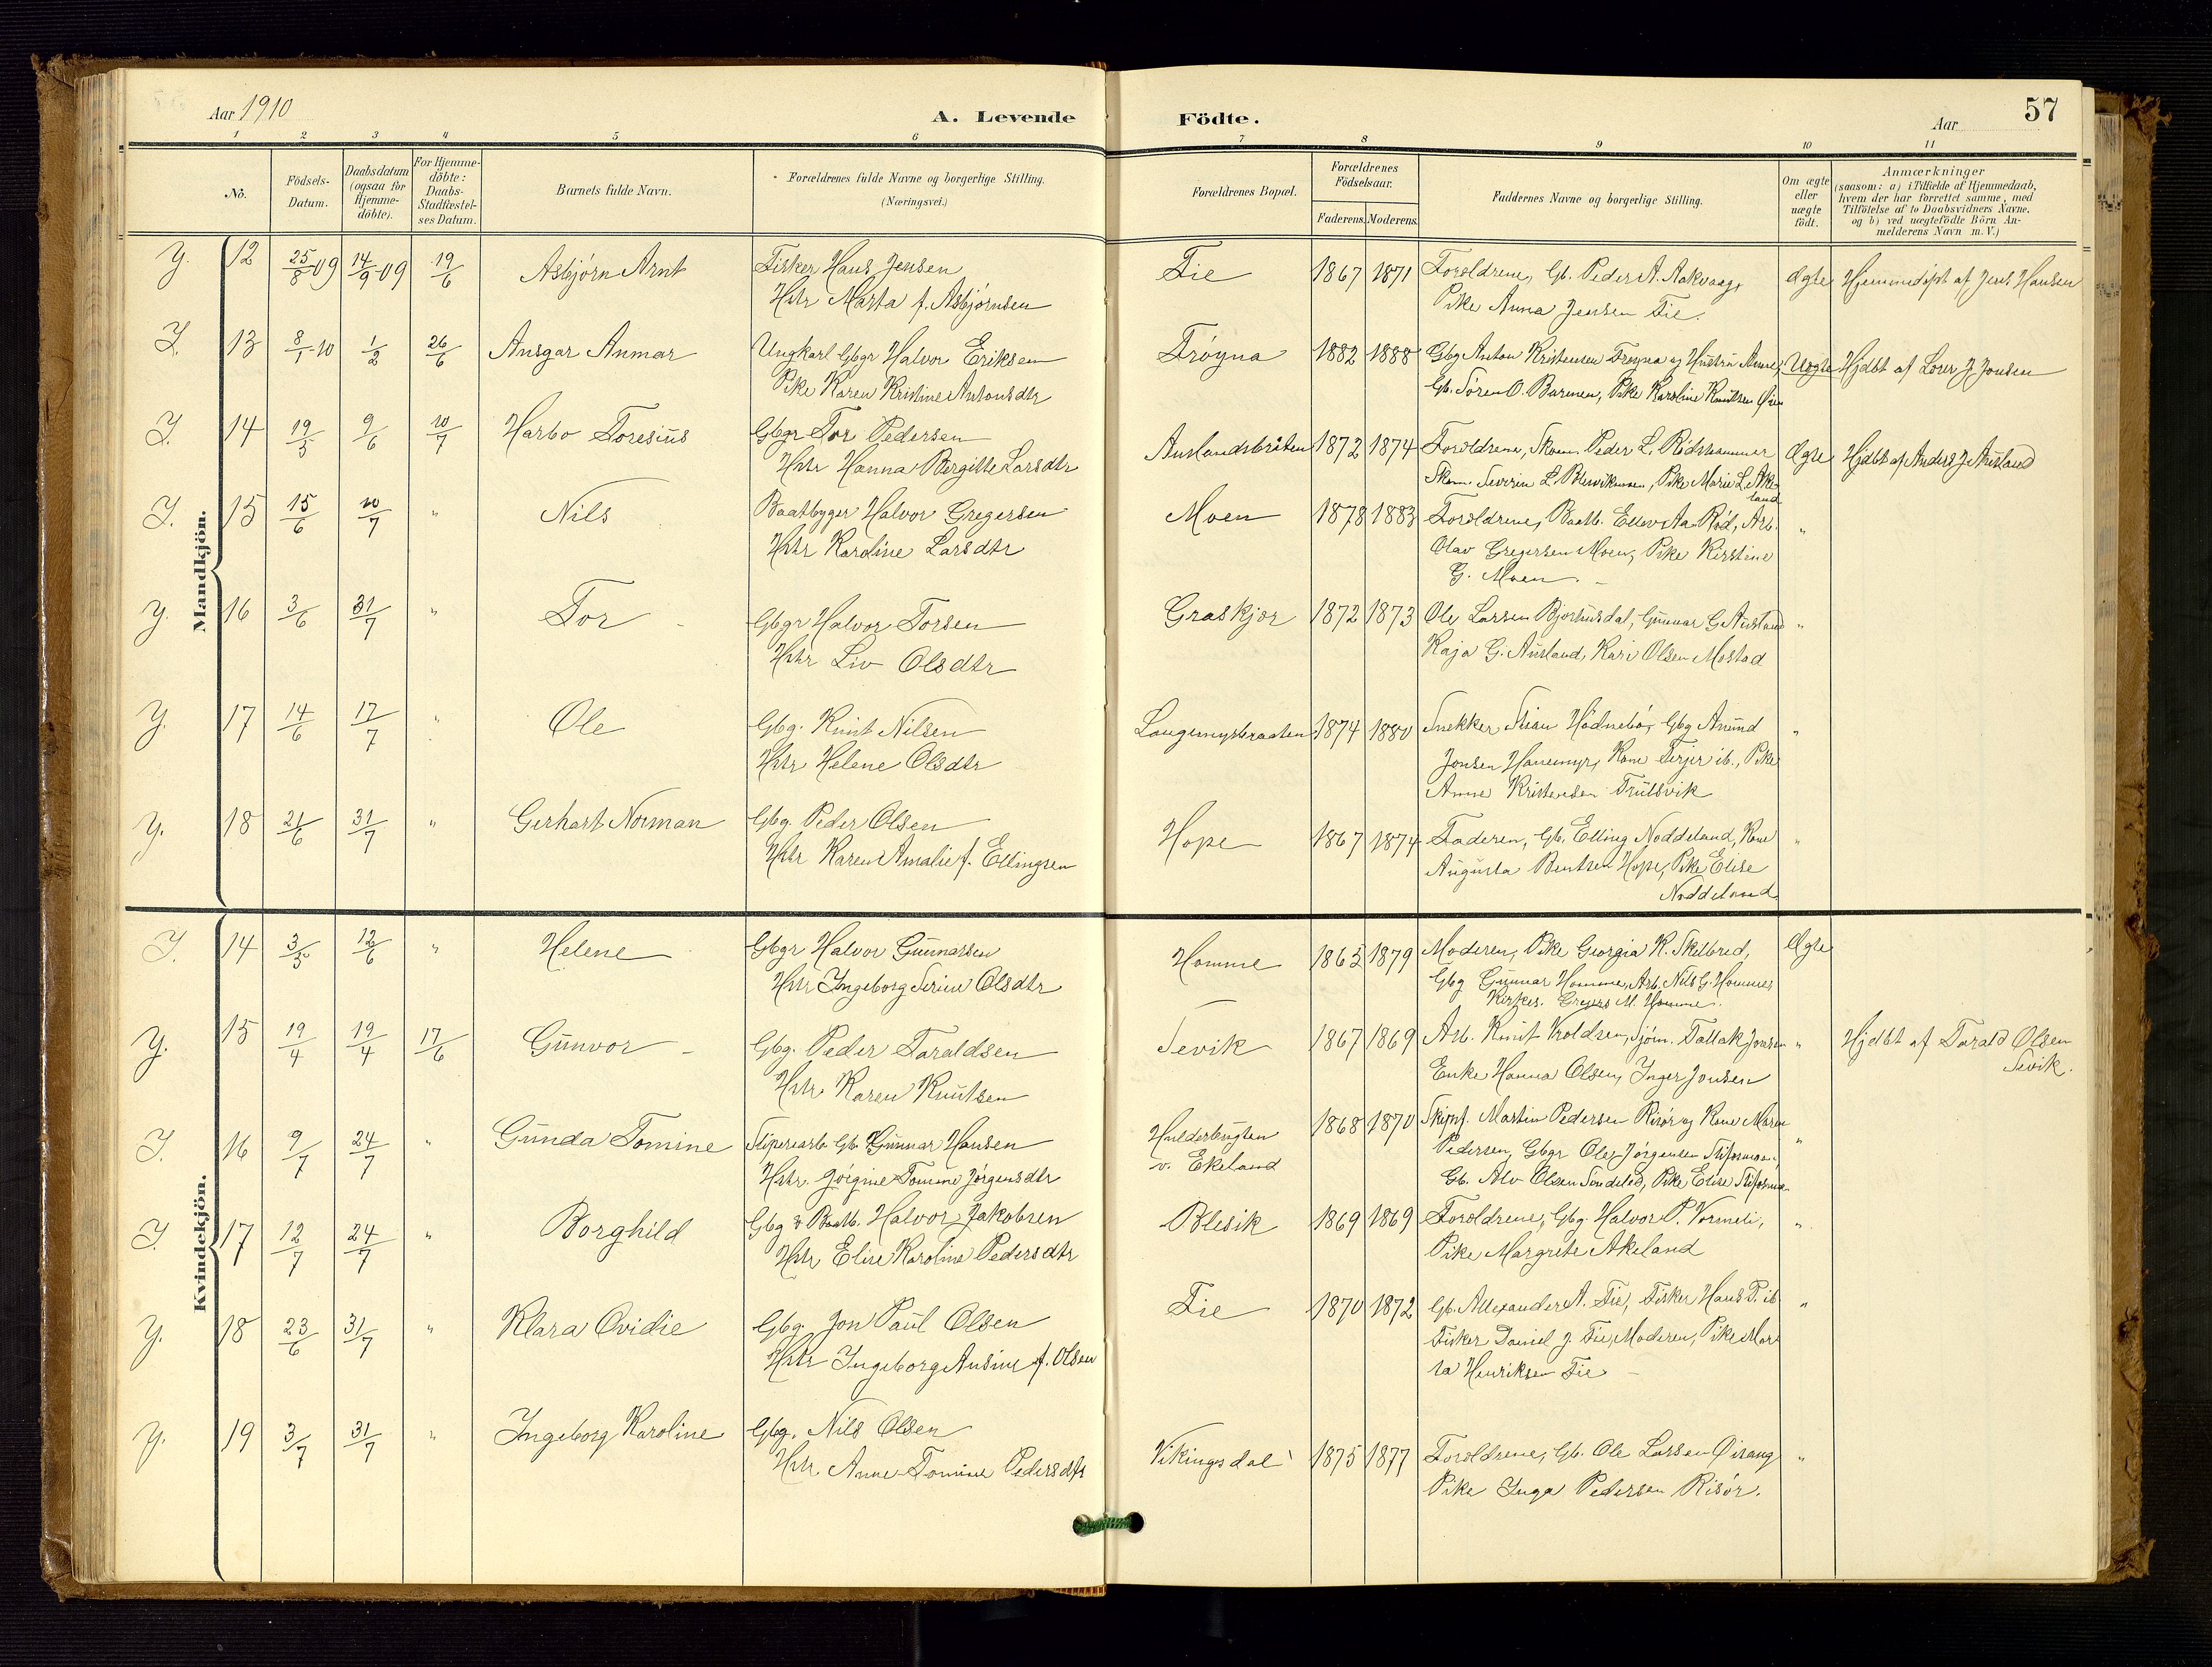 Aar 1910
A. Levende Födte.
Aar
57
1 2 3 4 5 6 7 8 9 10 11
No.
Födsels-Datum.
Daabsdatum (ogsaa for Hjemme-döbte).
For Hjemme-döbte: Daabs-Stadfæstel-ses Datum.
Barnets fulde Navn.
Forældrenes fulde Navne og borgerlige Stilling.
(Næringsvei.)
Forældrenes Bopæl.
Forældrenes Födselsaar.
Faderens. Moderens.
Faddernes Navne og borgerlige Stilling.
Om ægte eller uægte födt.
Anmærkninger
(saasom: a) i Tilfælde af Hjemmedaab, hvem der har forrettet samme, med Tilföielse af to Daabsvidners Navne. og b) ved uægtefödte Börn An-melderens Navn m. V.)
Mandkjön.
Y. 12 25/8-09 14/9-09 19/6 Asbjørn Arnt Fisker Hans Jensen Fie 1867 1871 Foroldrene, Gb. Peder A. Aakvaag, Ægte Hjemmedøpt af Jens Hansen
Hstr Marta f. Asbjørnsen Pike Anna Jensen Fie.
I. 13 8/1-10 1/2 26/6 Ansgar Anmar Ungkarl Gbgr Halvor Eriksen Frøyna 1882 1888 Gbg Anton Kristensen Frøyna og Hustru Anne, Uægte Hjdbt af J. Jonsen
Pike Karen Kristine Antonsdtr Gb. Søren O. Barmen, Pike Karoline Knutsen Øien
I. 14 19/5 9/6 10/7 Harbo Toresius Gbgr Tor Pedersen Auslandsbråten 1872 1874 Foroldrene, Skom. Peder L. Rødshammer Ægte Hjdbt af Anders J Ausland
Hstr Hanna Bergitte Larsdtr Skom. Severin L. Pike Marie L. Ake-
land
I. 15 15/6 10/7 " Nils Baatbygger Halvor Gregersen Moen 1878 1883 Foroldrene, Baatb. Ellev Aa. Rød, Arb. "
Hstr Karoline Larsdtr Olav Gregersen Moen, Pike Kirstine
G. Moen.
Y. 16 3/6 31/7 " Tor Gbgr Halvor Torsen Graskjør 1872 1873 Ole Larsen Bjorhusdal, Gunnar G. Ausland "
Hstr Liv Olsdtr Kaja G. Ausland, Kari Olsen Mostad
Y. 17 14/6 17/7 " Ole Gbg. Knut Nilsen Langemyrbraaten 1874 1880 Snekker Stian Hødnebø, Gbg Anund "
Hstr Helene Olsdtr Jonsen Hanemyr, Kone Terjer ib., Pike
Anne Kristensen Trulsvik
Y. 18 21/6 31/7 " Gerhart Norman Gbg. Peder Olsen Hope 1867 1874 Faderen, Gb. Elling Noddeland, Kone "
Hstr Karen Amalie f. Ellingsen Augusta Bentsen Hope, Pike Elise
Noddeland
Kvindekjön.
I. 14 3/5 12/6 " Helene Gbgr Halvor Gunnarsen Homme 1863 1879 Moderen, Pike Georgia K. Skelbred, Ægte
Hstr Ingeborg Serine Olsdtr Gbg Gunnar Homme, Arb. Nils G. Homme,
Kirkes. Gregers M. Homme.
Y. 15 19/4 19/4 17/6 Gunvor Gbg. Peder Taraldsen Sevik 1867 1869 Arb. Knut Kroldsen, Sjøm. Tallak Jonsen " Hjdbt af Tarald Olsen
Hstr. Karen Knutsen Enke Hanna Olsen, Inger Jonsen Sevik.
I. 16 9/7 24/7 " Gunda Tomine Sliperiarb. Gb. Gunnar Hansen Hulderbugten 1868 1870 Skipsf. Martin Pedersen Risør og Kone Maren "
Hstr. Jørgine Tomine Jørgensdtr v. Ekeland Pedersen, Gbgr Ole Jørgensen
Gb. Alv Olsen Søndeled, Pike Elise
I. 17 12/7 24/7 " Borghild Gbg & Baatb. Halvor Jakobsen Blesik 1869 1869 Foroldrene, Gbg. Halvor P. Vormeli, "
Hstr Elise Karoline Pedersdtr Pike Margrete Akeland
Y. 18 23/6 31/7 " Klara Ovidie Gbg. Jon Paul Olsen Fie 1870 1872 Gb. Allexander A. Fie, Fisker Hans P. ib "
Hstr Ingeborg Ansine f. Olsen Fisker Daniel J. Fie, Moderen, Pike Mar-
ta Henriksen Fie
Y. 19 3/7 31/7 " Ingeborg Karoline Gbg. Nils Olsen Vikingsdal 1875 1877 Foroldrene, Gb. Ole Larsen Øisang "
Hstr Anne Tomine Pedersdtr Pike Inga Pedersen Risør.